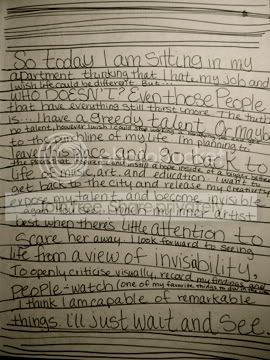 So today I am sitting in my
apartment thinking that I hate my job and
I wish life could be different. But...
WHO DOESN'T? Even those People
that have everything still thirst more. The truth
is... I have a greedy talent. Or maybe
be talent, however I wish I could
to the punchline of my life. I'm planning to
leave this place and go back to
life of music, art, and education. I want to
get back to the city and release my creations
expose my talent, and become invisible
again. You see,
best when theres little attention to
scare her away. I look forward to seeing
life from a view of Invisibility,
To openly criticise visually, record my findings, and
People-watch (one of my favorite things to do in the
I think I am capable of remarkable
things i'll just wait and see.
photobucket